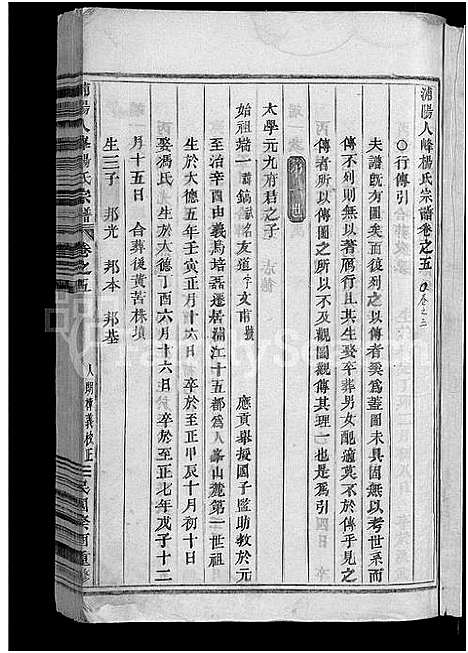 浦陽人峰楊氏宗譜卷之五
○行傳引
夫譜旣有圖矣而復列以傳者奚為蓋圖未具固無以考世系而
傳不列則無以著鴈行且其生娶卒葬男女配適莫不於傳乎見之
傳者所以傳圖之所以不及觀圖觀傳其理一也是為引
第一世
太學元九府君之子
始祖端一 諱鎬 友道字文甫 應貢舉授國子監助教於元
至治辛酉由義烏培磊遷居浦江十五都為人峯山麓第一世祖
生於大德五年壬寅正月十六日 卒於至正甲辰十月初十日
娶馮氏 生於大德丁酉六月十六日 卒於至正北年戊子十二
月十五日 合葬後黃苦株塤
生三子 邦光 邦本 邦基
浦陽人峰楊氏宗譜 卷之五 人 校正 民國癸酉重修